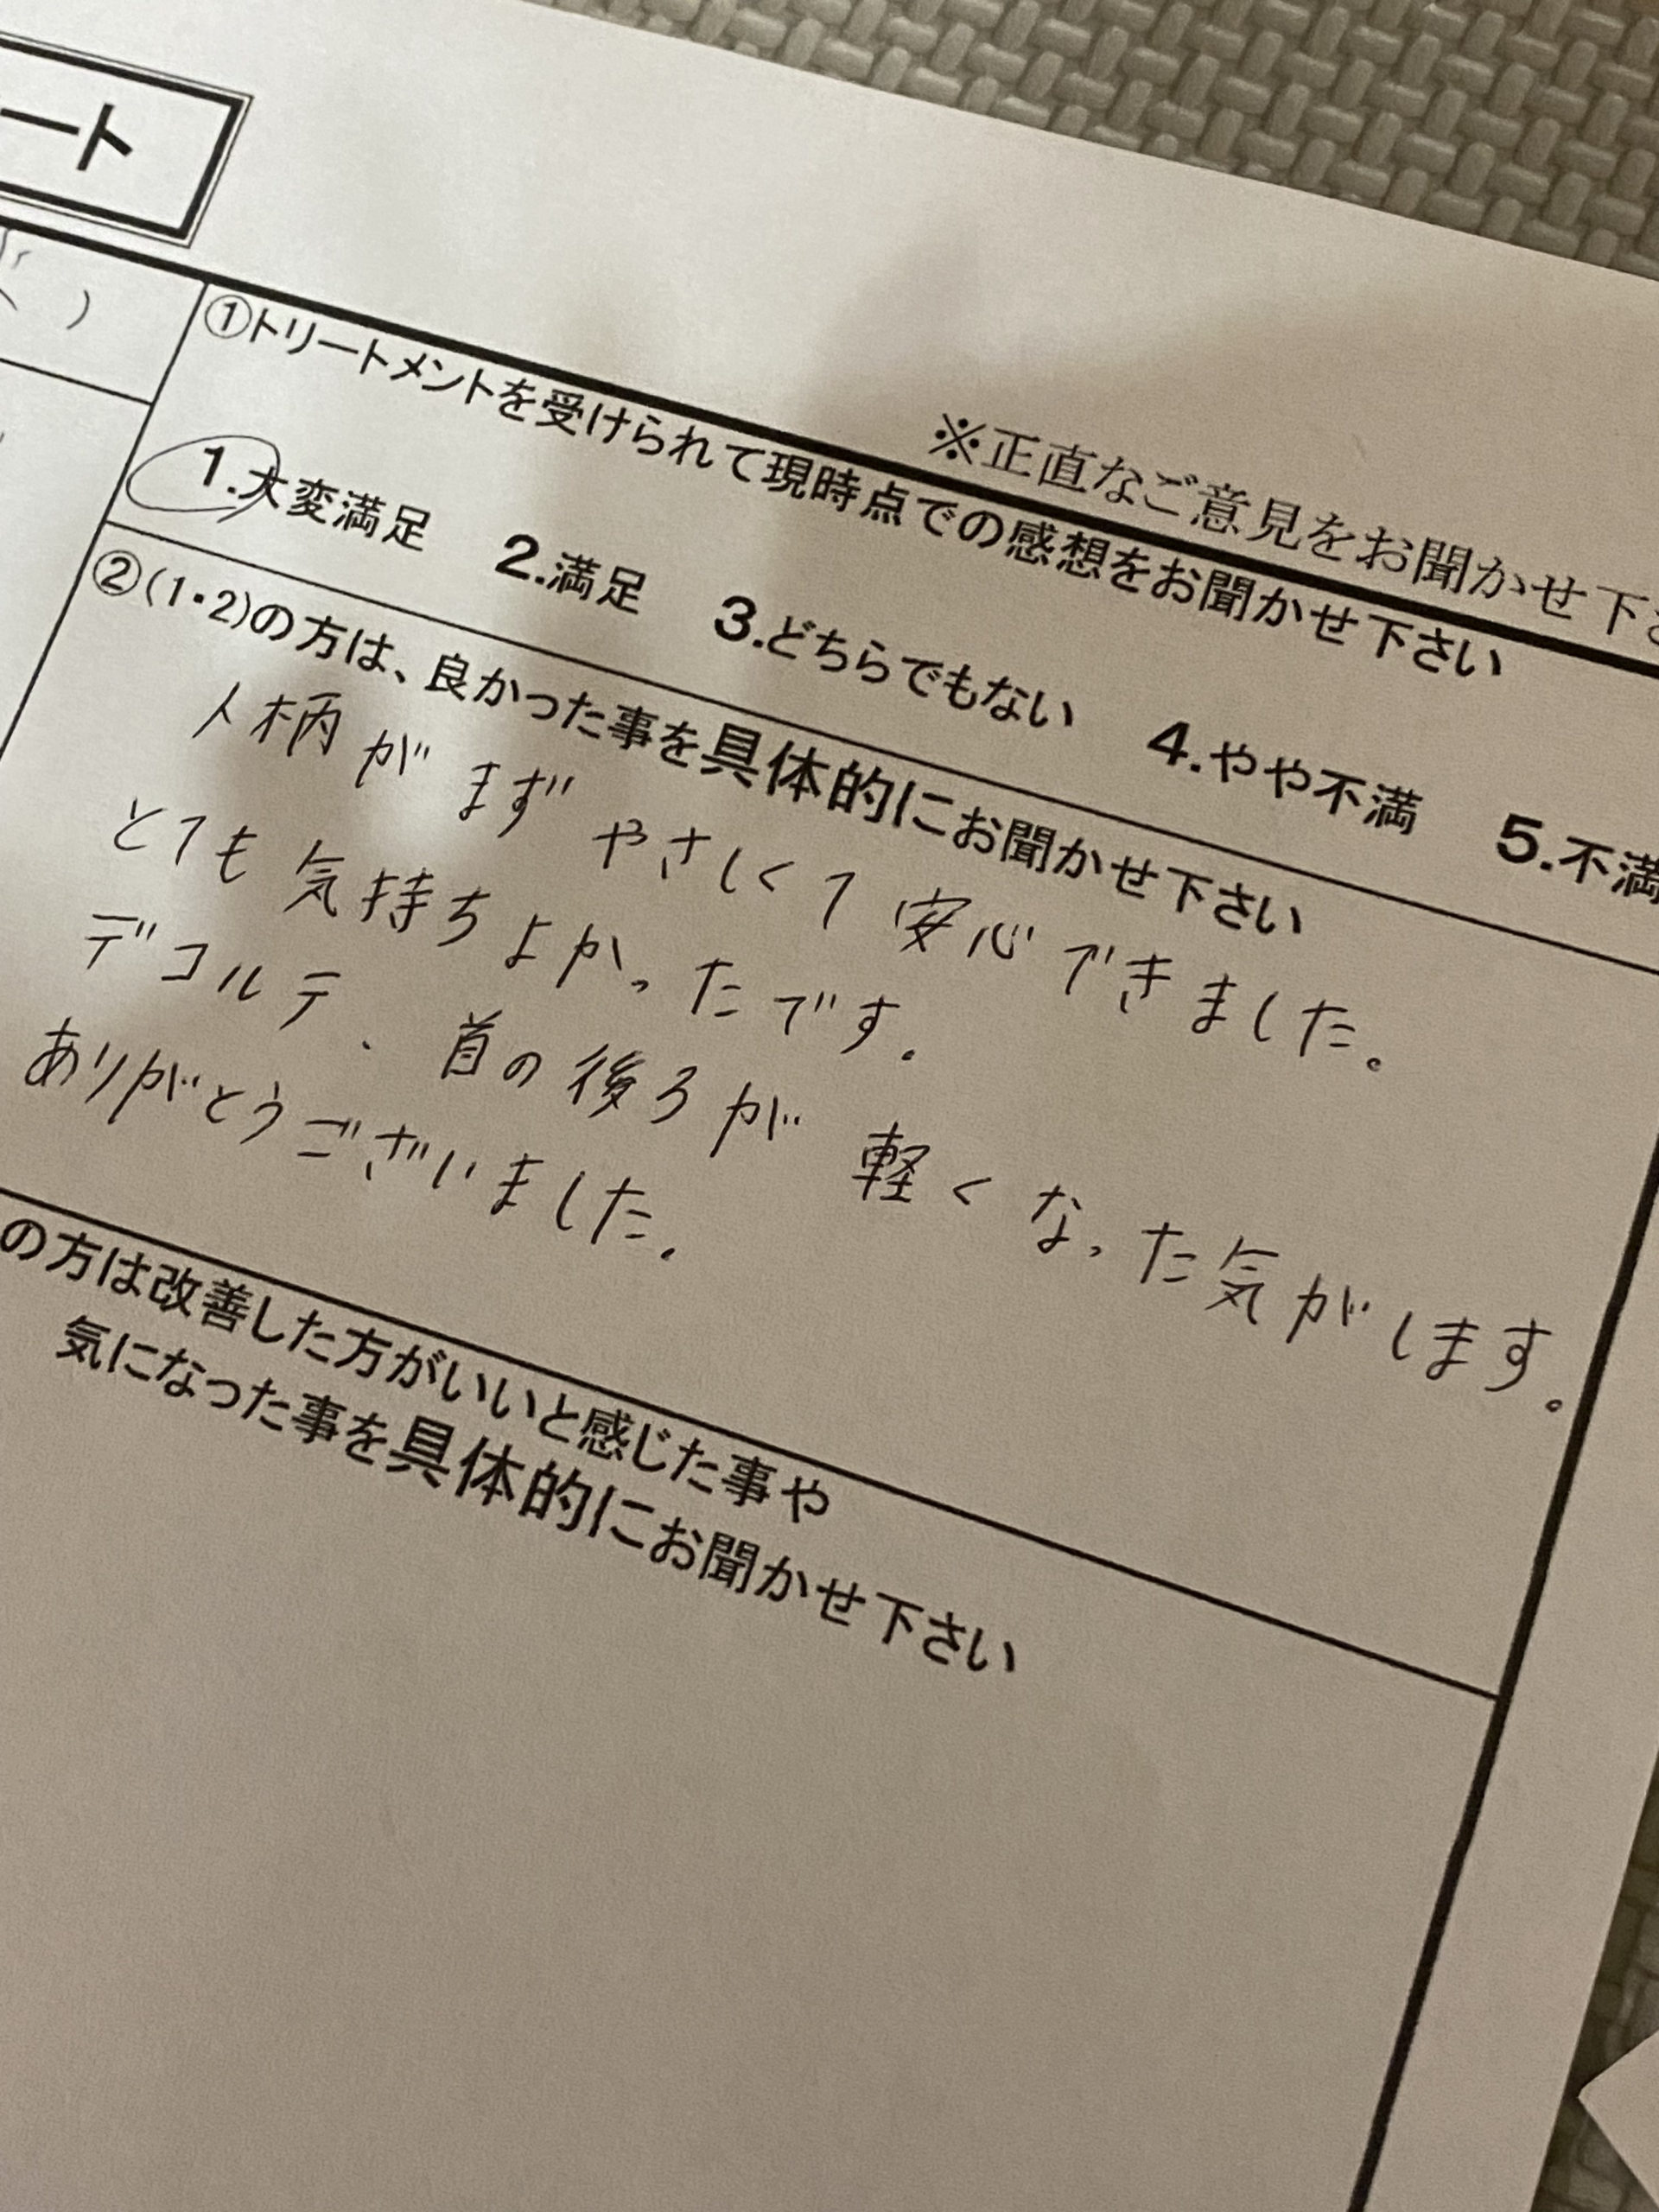 ート
※正直なご意見をお聞かせ下さ
）
①トリートメントを受けられて現時点での感想をお聞かせ下さい
1.大変満足 2.満足 3.どちらでもない 4.やや不満 5.不満
②(1・2)の方は、良かった事を具体的にお聞かせ下さい
人柄がまずやさしくて安心できました。
とても気持ちよかったです。
デコルテ、首の後ろが軽くなった気がします。
ありがとうございました。
の方は改善した方がいいと感じた事や
気になった事を具体的にお聞かせ下さい